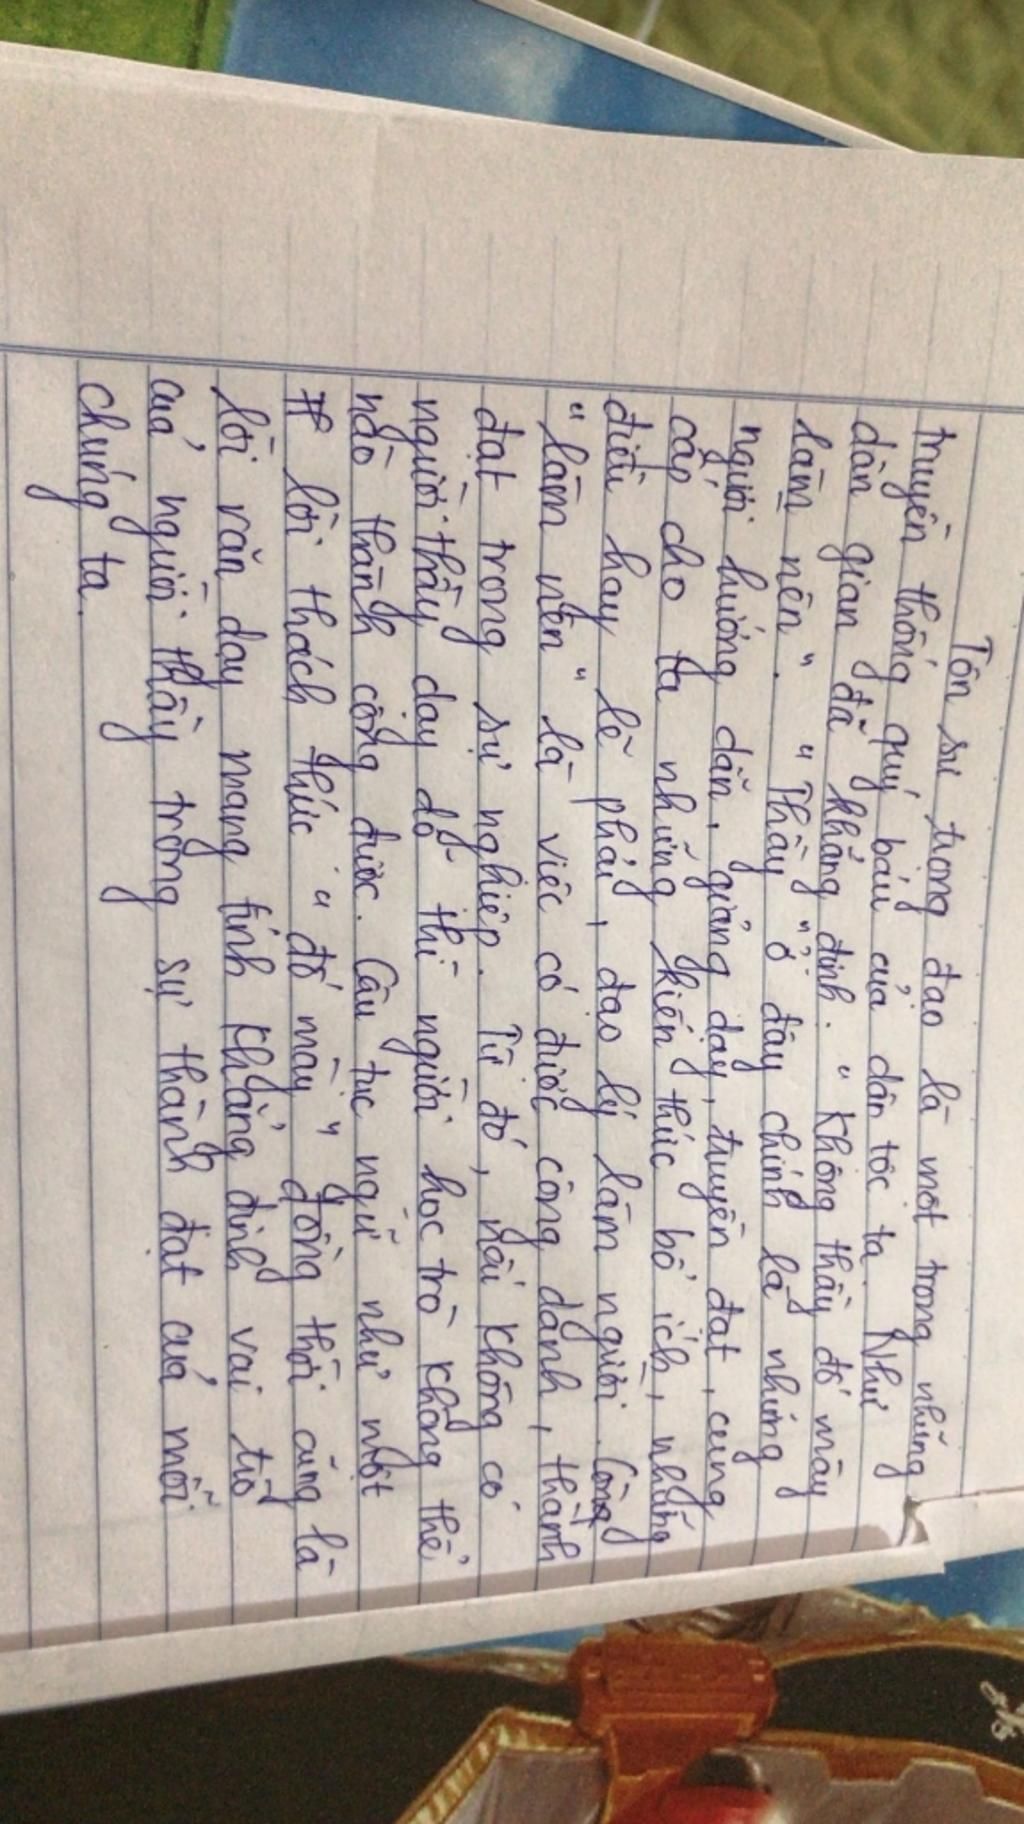 Tôn sư trọng đạo là một trong những
truyền thống quý báu của dân tộc ta. Như
dân gian đã khẳng định. "Không thầy đố mày
làm nên". "Thầy" ở đây chính là những
người hướng dẫn, giảng dạy, truyền đạt, cung
cấp cho ta những kiến thức bổ ích, những
điều hay lẽ phải, đạo lý làm người. Còn
"làm nên" là việc có được công danh, thành
đạt trong sự nghiệp. Từ đó, nếu không có
người thầy dạy dỗ thì người học trò không thể
nào thành công được. Câu tục ngữ như một
lời thách thức "đố mày" đồng thời cũng là
lời răn dạy mang tính khẳng định vai trò
của người thầy trong sự thành đạt của mỗi
chúng ta.